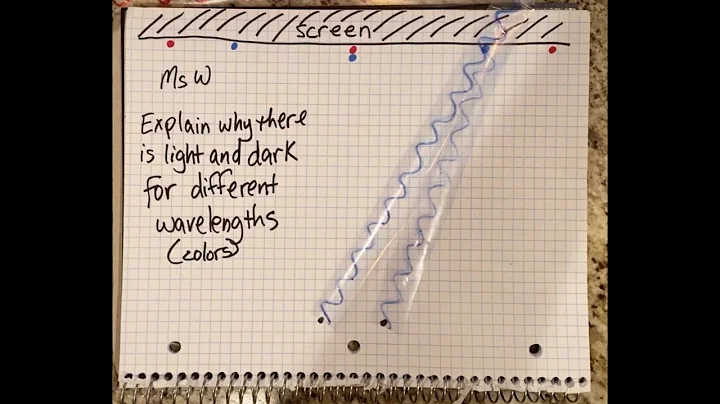 Screen
Ms W
Explain why there
is light and dark
for different
wavelengths
(colors)